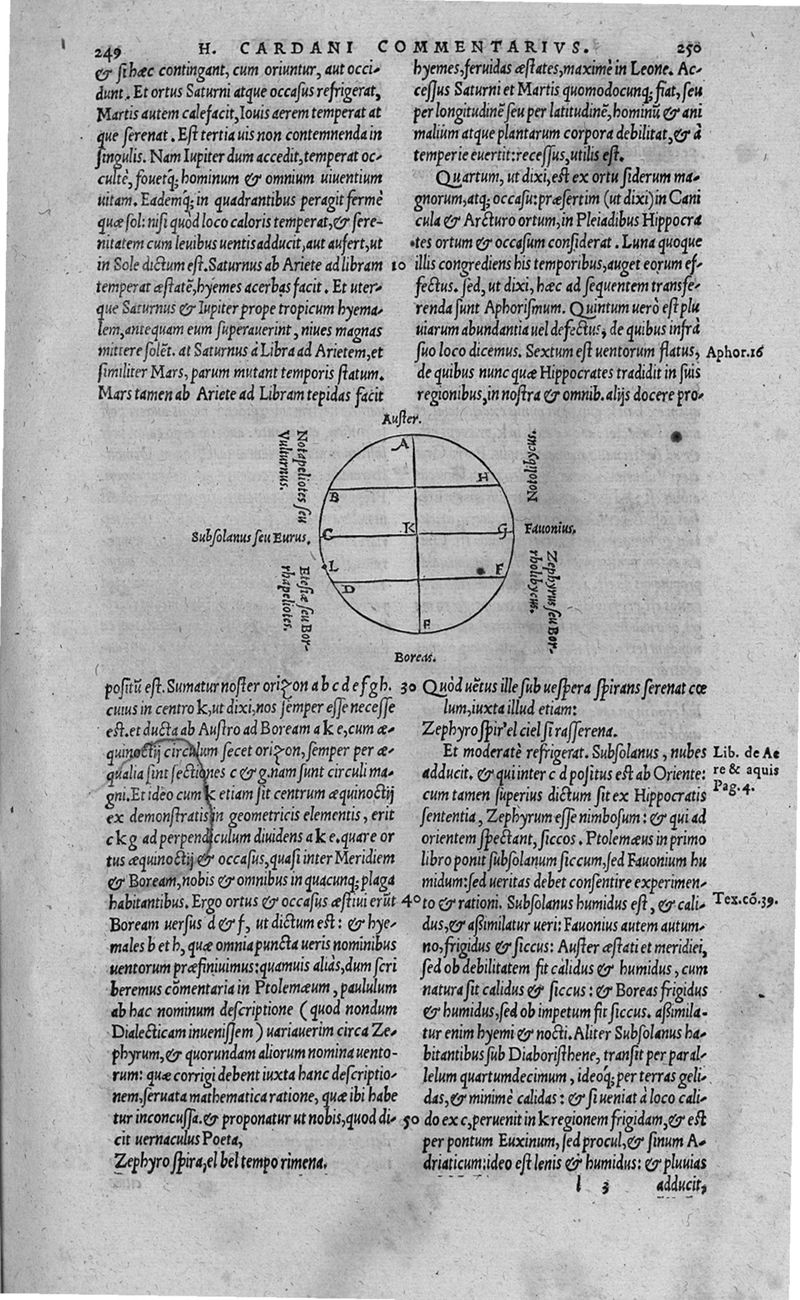 249 H. CARDANI COMMENTARIVS. 250
& si hæc contingant, cum oriuntur, aut occi-
dunt. Et ortus Saturni atque occasus refrigerat,
Martis autem calefacit, Iouis aerem temperat at
que serenat. Est tertia uis non contemnenda in
singulis. Nam Iupiter dum accedit, temperat oc-
cultè, fouetq; hominum & omnium uiuentium
uitam. Eademq; in quadrantibus peragit fermè
quæ sol: nisi quòd loco caloris temperat, & sere-
nitatem cum leuibus uentis adducit, aut aufert, ut
in Sole dictum est. Saturnus ab Ariete ad libram
temperat æstatē, hyemes acerbas facit. Et uter-
que Saturnus & Iupiter prope tropicum hyema-
lem, antequam eum superauerint, niues magnas
mittere solēt. at Saturnus à Libra ad Arietem, et
similiter Mars, parum mutant temporis statum.
Mars tamen ab Ariete ad Libram tepidas facit
10
hyemes, feruidas æstates, maximè in Leone. Ac-
cessus Saturni et Martis quomodocunq; fiat, seu
per longitudinē seu per latitudinē, hominū & ani
malium atque plantarum corpora debilitat, & à
temperie euertit: recessus, utilis est.
Quartum, ut dixi, est ex ortu siderum ma-
gnorum, atq; occasu: præsertim (ut dixi) in Cani
cula & Arcturo ortum, in Pleiadibus Hippocra
tes ortum & occasum considerat. Luna quoque
illis congrediens his temporibus, auget eorum ef-
fectus. sed, ut dixi, hæc ad sequentem transfe-
renda sunt Aphorismum. Quintum uerò est plu
uiarum abundantia uel defectus, de quibus infrà
suo loco dicemus. Sextum est uentorum flatus,
de quibus nunc quæ Hippocrates tradidit in suis
regionibus, in nostra & omnib. alijs docere pro-
Aphor. 16
Auster.
Notapeliotes seu
Vulturnus.
Notolibycus.
A
H
B
Subsolanus seu Eurus.
C
K
G
Fauonius.
L
F
D
E
Etesiæ seu Bor-
rhapeliotes.
Zephyrus seu Bor-
rholibycus.
Boreas.
positū est. Sumatur noster orizon a b c d e f g h.
cuius in centro k, ut dixi, nos semper esse necesse
est. et ducta ab Austro ad Boream a k e, cum æ-
quinoctij circulum secet orizon, semper per æ-
qualia sint sectiones c & g. nam sunt circuli ma-
gni. Et ideo cum k etiam sit centrum æquinoctij
ex demonstratis in geometricis elementis, erit
c k g ad perpendiculum diuidens a k e. quare or
tus æquinoctij & occasus, quasi inter Meridiem
& Boream, nobis & omnibus in quacunq; plaga
habitantibus. Ergo ortus & occasus æstiui erūt
Boream uersus d & f, ut dictum est: & hye-
males b et h, quæ omnia puncta ueris nominibus
uentorum præfiniuimus: quamuis aliàs, dum scri
beremus cōmentaria in Ptolemæum, paululum
ab hac nominum descriptione (quod nondum
Dialecticam inuenissem) uariauerim circa Ze-
phyrum, & quorundam aliorum nomina uento-
rum: quæ corrigi debent iuxta hanc descriptio-
nem, seruata mathematica ratione, quæ ibi habe
tur inconcussa. & proponatur ut nobis, quod di-
cit uernaculus Poeta,
Zephyro spira, el bel tempo rimena.
30
40
50
Quòd uētus ille sub uespera spirans serenat cœ
lum, iuxta illud etiam:
Zephyro spir' el ciel si rasserena.
Et moderatè refrigerat. Subsolanus, nubes
adducit. & qui inter c d positus est ab Oriente:
cum tamen superius dictum sit ex Hippocratis
sententia, Zephyrum esse nimbosum: & qui ad
orientem spectant, siccos. Ptolemæus in primo
libro ponit subsolanum siccum, sed Fauonium hu
midum: sed ueritas debet consentire experimen-
to & rationi. Subsolanus humidus est, & cali-
dus, & assimilatur ueri: Fauonius autem autum-
no, frigidus & siccus: Auster æstati et meridiei,
sed ob debilitatem fit calidus & humidus, cum
natura sit calidus & siccus: & Boreas frigidus
& humidus, sed ob impetum fit siccus. assimila-
tur enim hyemi & nocti. Aliter Subsolanus ha-
bitantibus sub Diaboristhene, transit per paral-
lelum quartumdecimum, ideoq; per terras geli-
das, & minimè calidas: & si ueniat à loco cali-
do ex c, peruenit in k regionem frigidam, & est
per pontum Euxinum, sed procul, & sinum A-
driaticum: ideo est lenis & humidus: & pluuias
l 3 adducit,
Lib. de Ae
re & aquis
Pag. 4.
Tex. cō. 39.